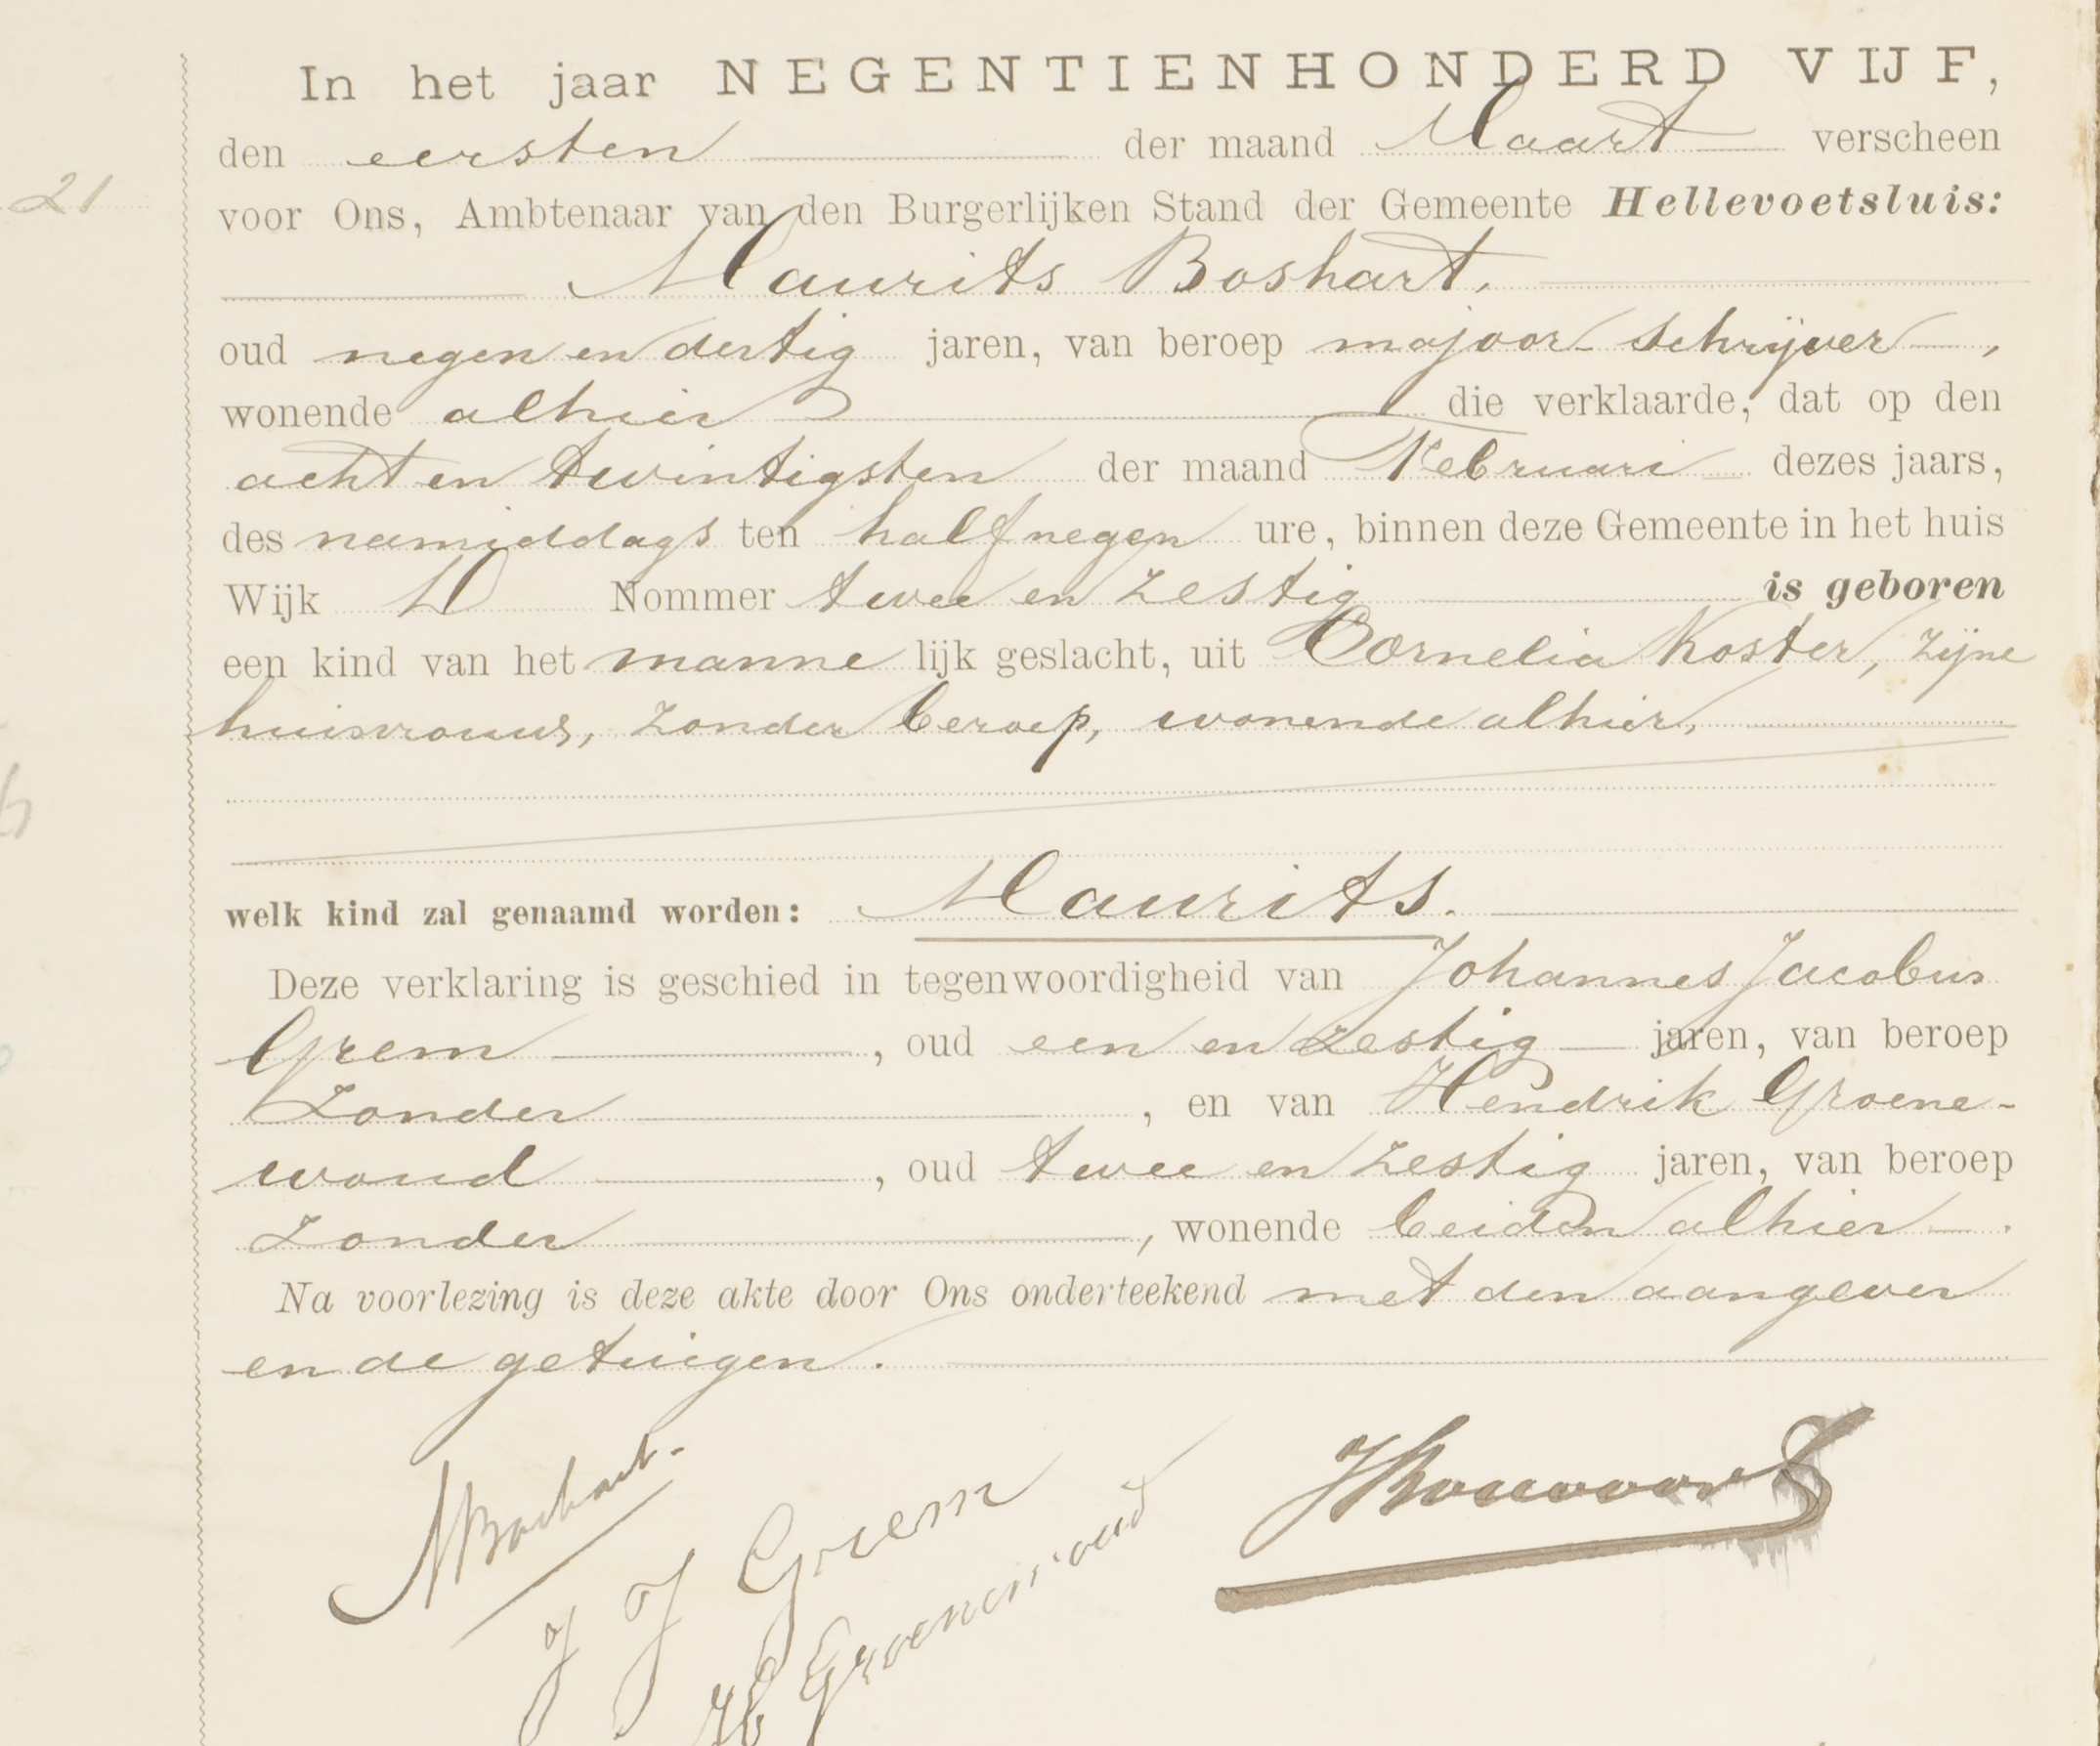 In het jaar NEGENTIENHONDERD VIJF,
den eersten der maand Maart verscheen
21
voor Ons, Ambtenaar van den Burgerlijken Stand der Gemeente Hellevoetsluis:
Maurits Boshart,
oud negen en dertig jaren, van beroep majoor-schrijver,
wonende alhier die verklaarde, dat op den
acht en twintigsten der maand Februari dezes jaars,
des namiddags ten half negen ure, binnen deze Gemeente in het huis
Wijk D Nommer twee en zestig is geboren
een kind van het mannelijk geslacht, uit Cornelia Koster, zijne
huisvrouw, zonder beroep, wonende alhier,
welk kind zal genaamd worden: Maurits.
Deze verklaring is geschied in tegenwoordigheid van Johannes Jacobus
Grem, oud een en zestig jaren, van beroep
zonder, en van Hendrik Groene-
woud, oud twee en zestig jaren, van beroep
zonder, wonende beiden alhier.
Na voorlezing is deze akte door Ons onderteekend met den aangever
en de getuigen.
MBoshart.
J J Grem
H Groenewoud